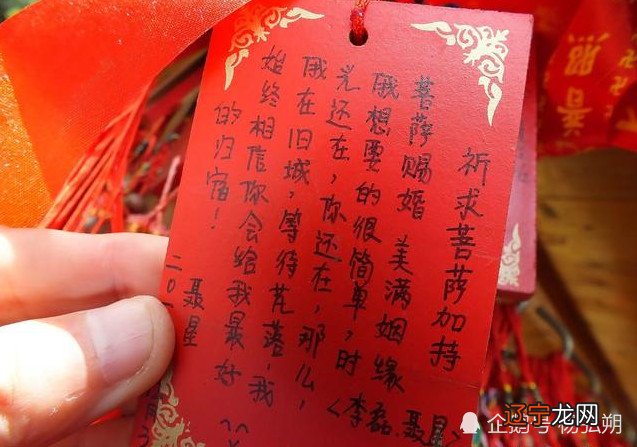 祈求菩萨加持
菩萨赐婚 美满姻缘
李磊 聂星
俄想要的很简单,时
光还在,你还在,那么,
俄在旧城,等待荒落,我
始终相信你会给我最好
的归宿!
聂星
二〇
普照
企鹅号 杨弘朔
辽宁龙网